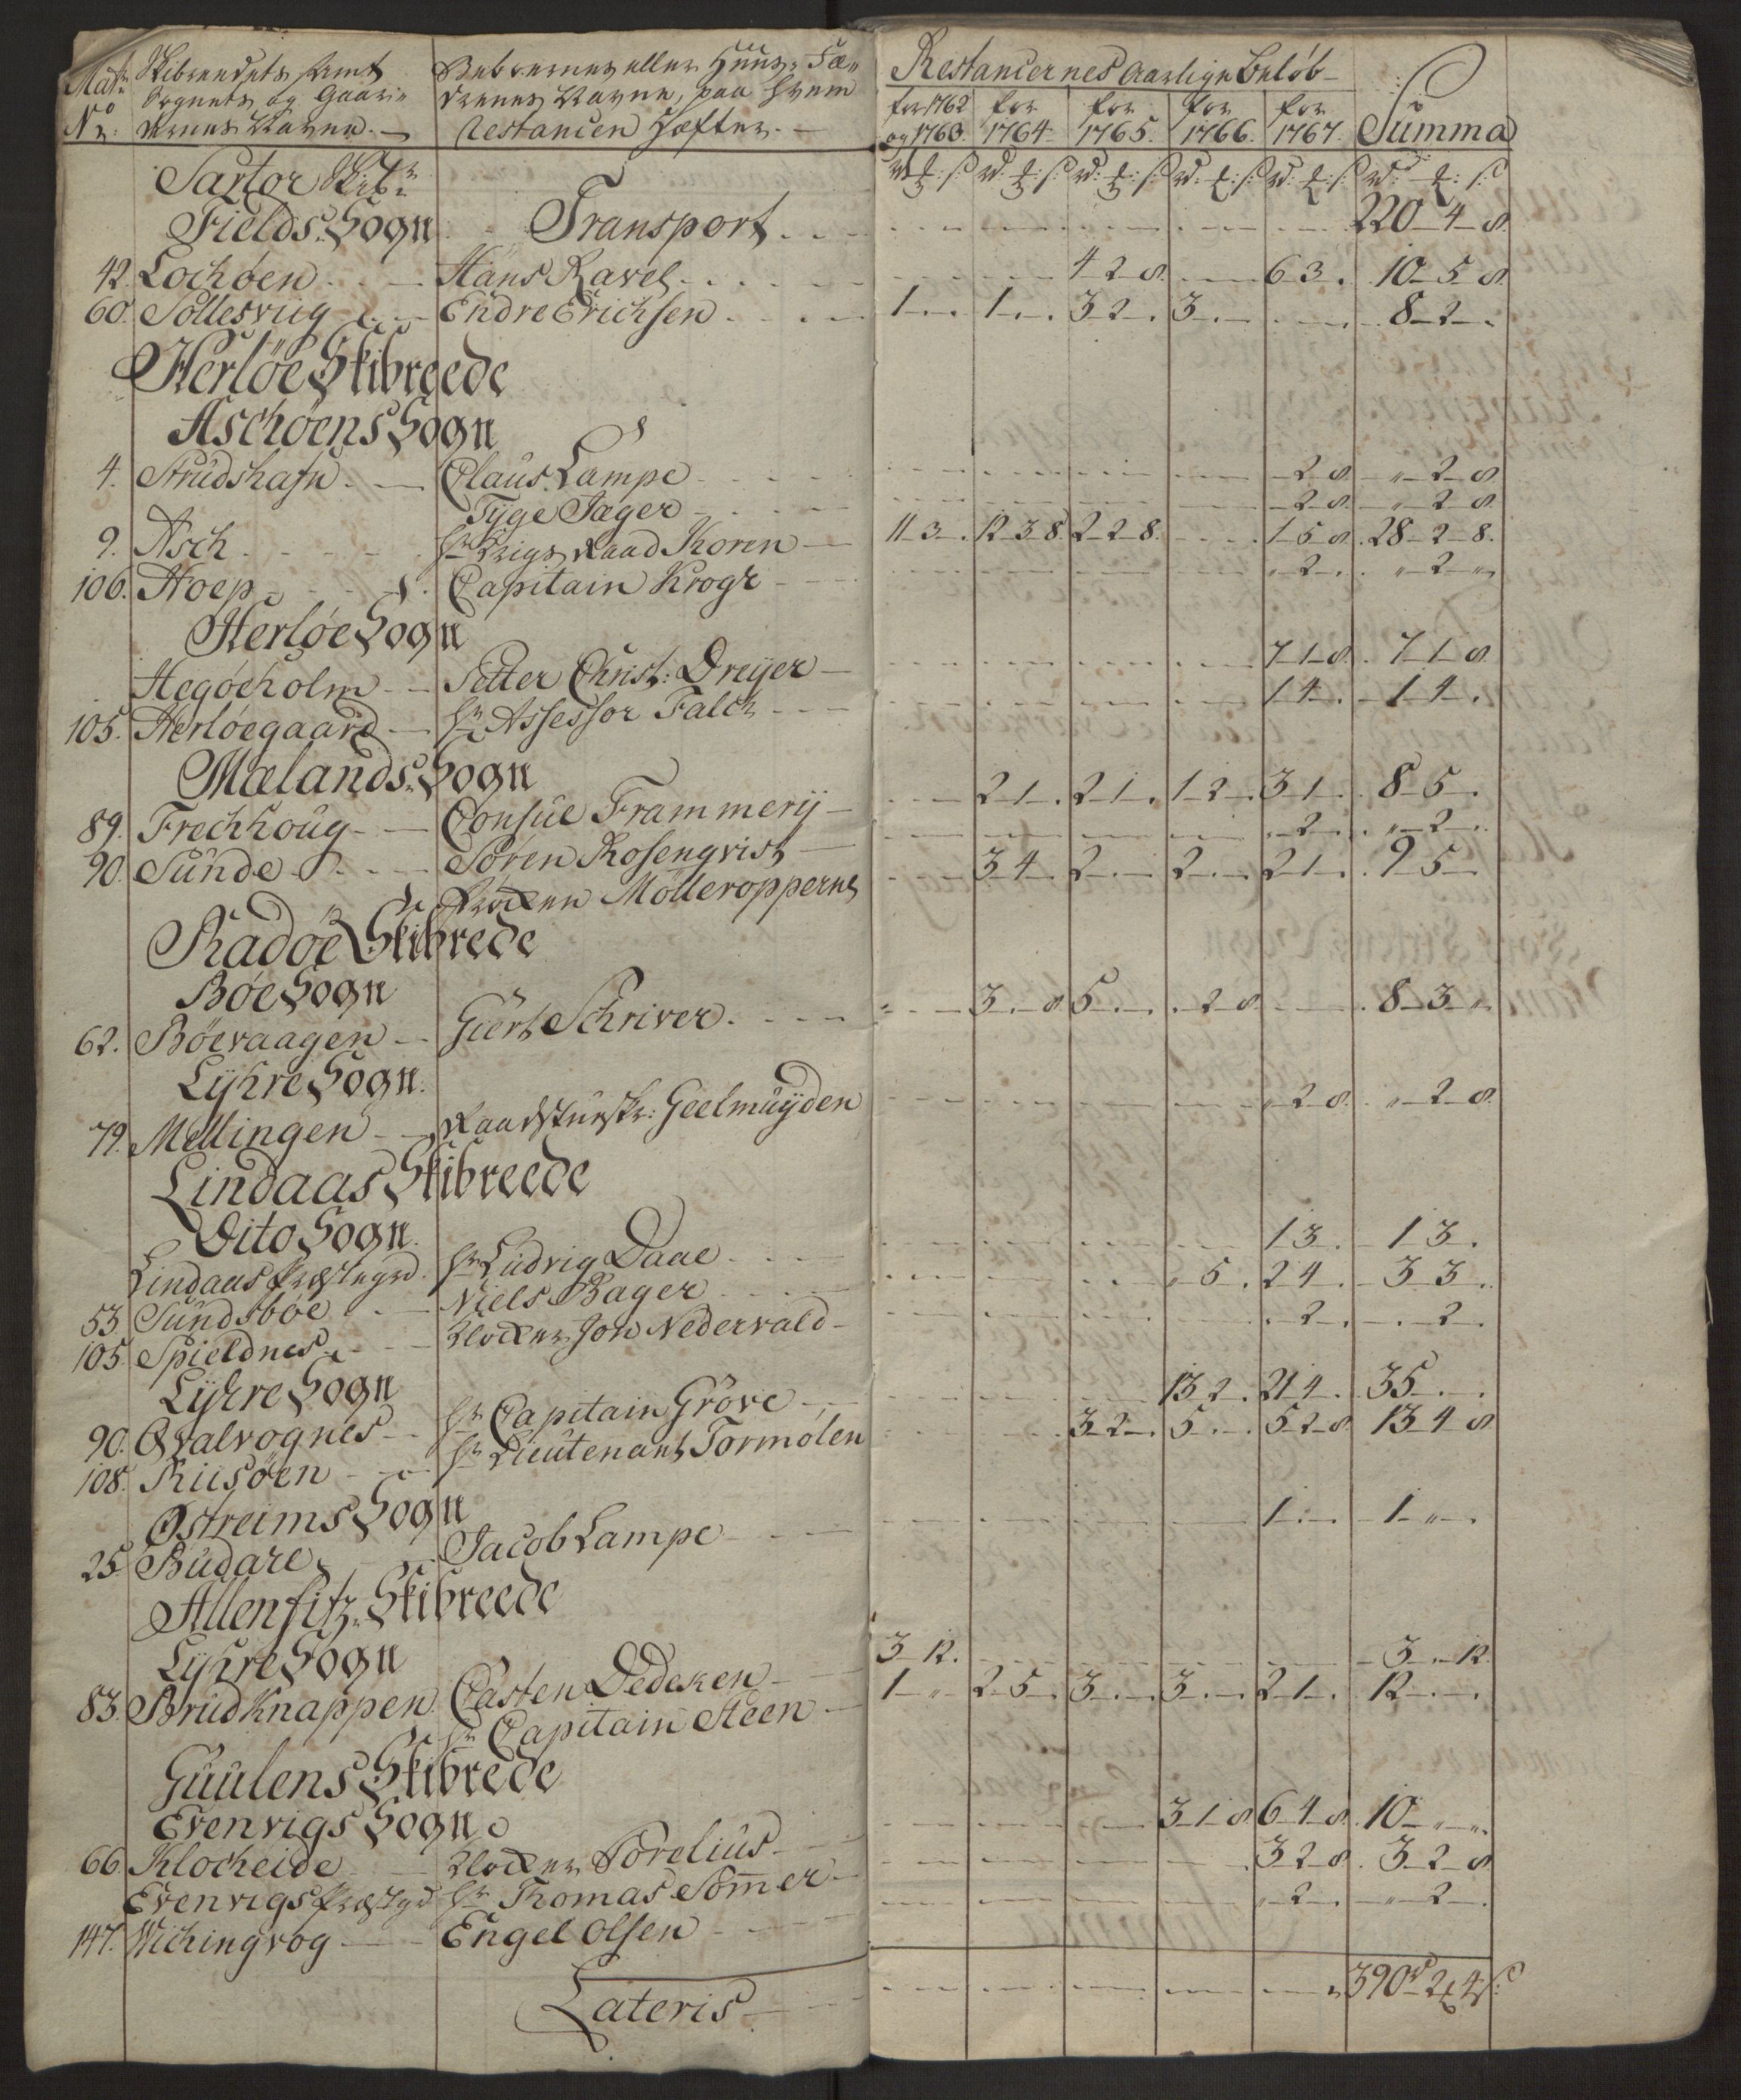 Mat: No Nr: | Skibreedets samt Sognets og Gaardernes Navne. | Beboernes eller Huus-Fædrenes Navne, paa hvem Restancen Hæfter. | Restancernes Aarlige Beløb
for 1762 og 1763. | for 1764. | for 1765. | for 1766. | for 1767. | Summa
rd. ƺ: s: | rd. ƺ: s: | rd. ƺ: s: | rd. ƺ: s: | rd. ƺ: s: | rd: ƺ: s:
Sartor Skibr:
Fields Sogn | Transport | 220-4-8
42. Lochøen | Hans Ravel | 4 2 8. | 6 3. | 10-5-8
60. Sollesviig | Endre Erichsen | 1 | 1 | 3 2. | 3 | 8-2-
Herløe Skibreede
Aschøens Sogn
4. Strudshafn | Claus Lampe | -2 8. | „-2-8
Tyge Jæger | -2-8. | „-2-8
9. Asch | Hr Krigs Raad Koren | 11 3. | 12 3 8. | 2-2-8. | 1 5 8. | 28-2-8.
106. Hoep | Capitain Krogh | „2. | „-2-„
Herløe Sogn
Hegøeholm | Petter Christ: Dreyer | 7 1 8. | 7-1-8
105. Herløegaard | Hr Assessor Falck | 1 4. | 1 4.
Mælands Sogn
89. Frechhoug | Consul Frammery | 2 1. | 2 1. | 1 2. | 3 1. | 8 5.
90. Sunde | Søren Rosenqvist | 2. | „-2-
Frøken Mølleropperne | 3 4. | 2. | 2. | 2 1. | 9 5
Radøe Skibrede
Bøe Sogn
62. Bøevaagen | Giert Schriver | 3. 8 | 5. | 2 8 | 8-3-„
Lykre Sogn.
79. Mellingen | Raadstueskr: Geelmuyden | „2 8. | „-2-8.
Lindaas Skibreede
Dito Sogn.
Lindaas Præstegrd. | Hr Ludvig Daae | 1 3. | 1 3.
53. Sundsbøe | Niels Bager | „5. | 2 4. | 3 3.
105. Spieldnes | Klocker Jon Nedervald | 2. | 2.
Lykre Sogn
90. Qvalvognes | Hr Capitain Grøve | 13 2. | 21 4. | 35
108. Riisøen | Hr Lieutenant Tormølen | 3 2. | 5 | 5 2 8. | 13 4 8
Østreims Sogn
25. Budare | Jacob Lampe | 1 | 1-„-.
Allenfitz Skibreede
Lykre Sogn
83. Brudknappen | Casten Dedeken | 3 12. | 3 . 12.
Hr Capitain Steen | 1-„ | 2 5. | 3 | 3 | 2 1. | 12
Guulens Skibrede
Evenvigs Sogn
66. Klockeide | Klocker Porelius | 3-1-8 | 6 4 8. | 10-„-„.
Evenvigs Præstgd | Hr Thomas Som̄er | 3 2 8. | 3-2-8
147. Wichingvog | Engel Olsen | „2. | „ 2
Lateris | 390rd 2ƺ 4s: